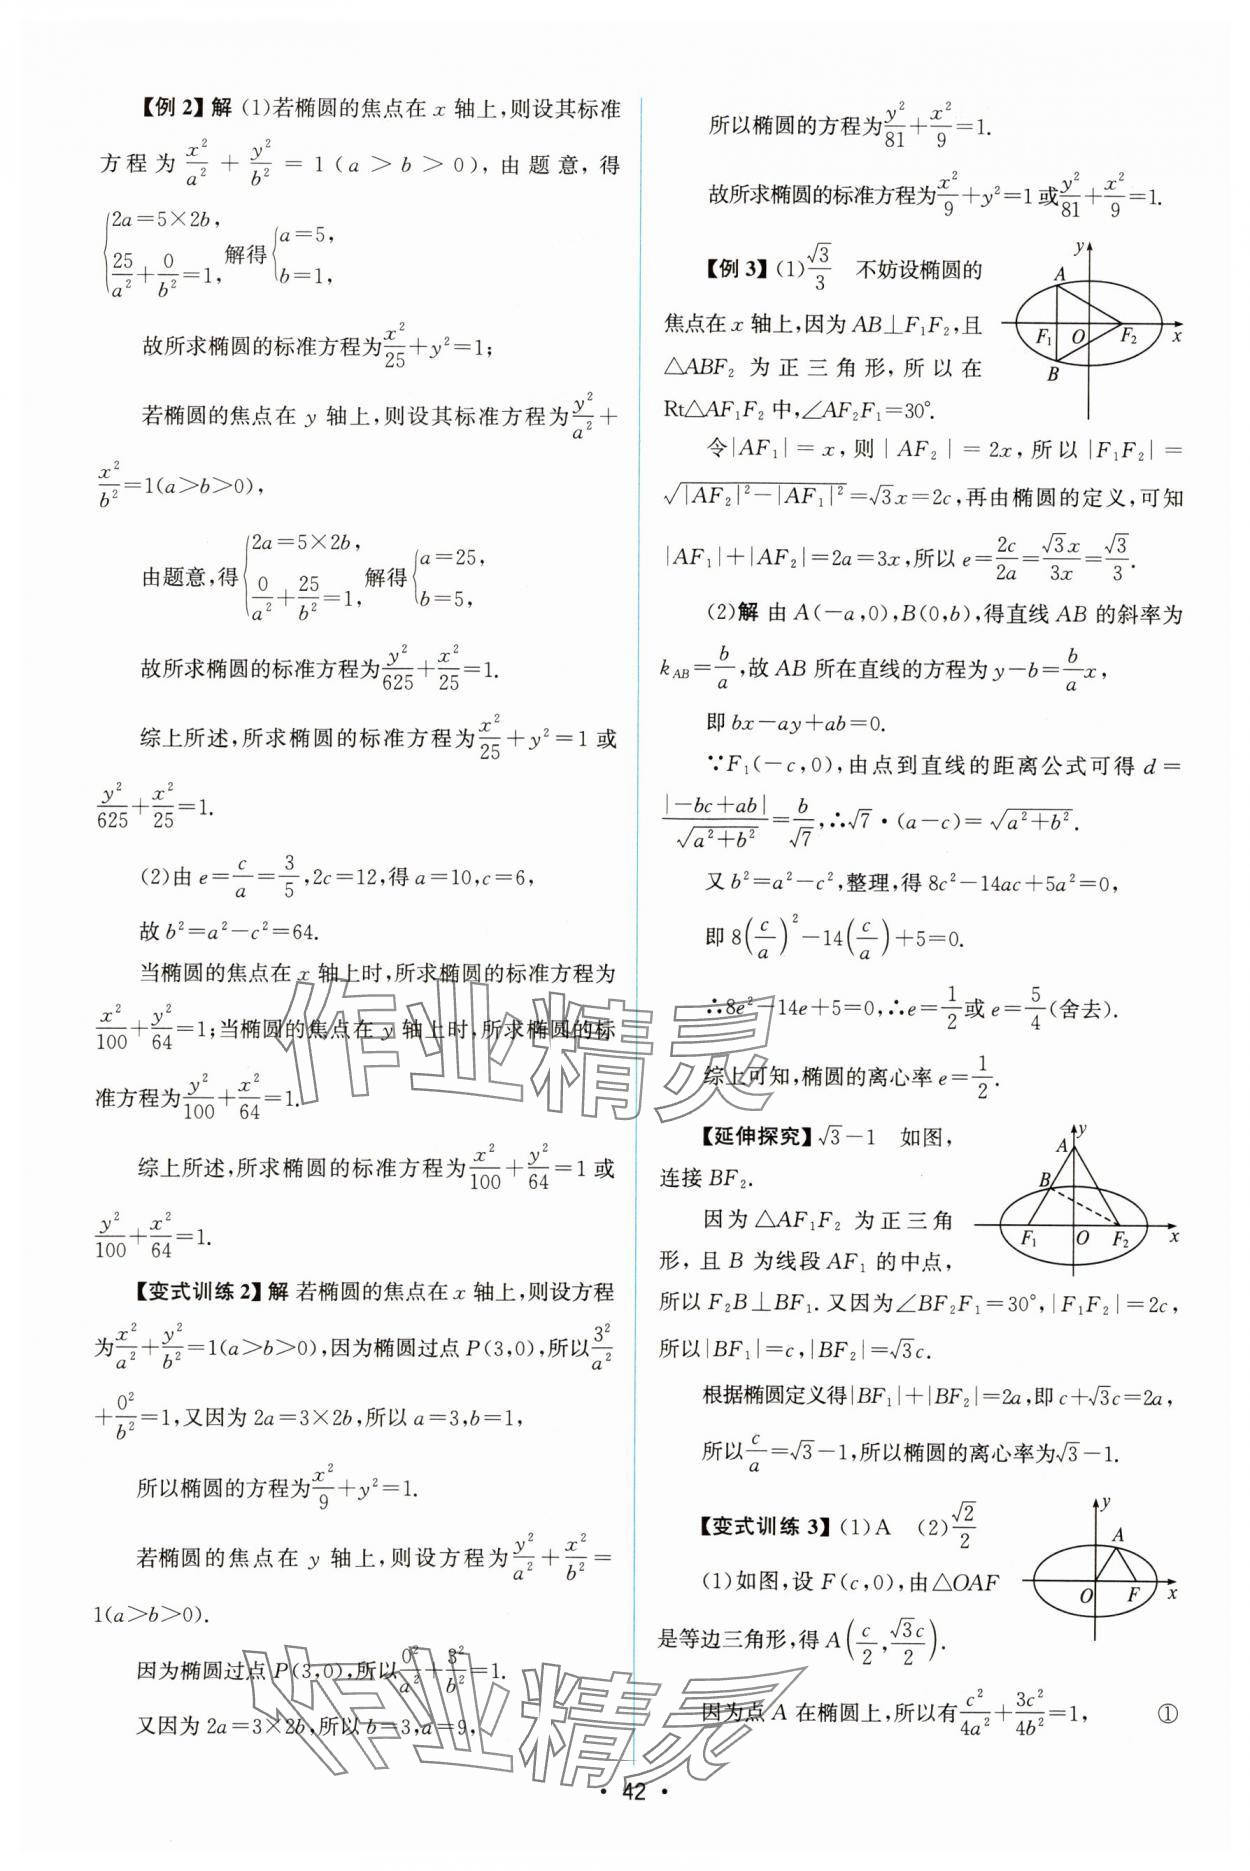 【例2】解 (1)若椭圆的焦点在 x 轴上,则设其标准
方程为 x²/a² + y²/b² = 1(a>b>0),由题意,得
{2a=5×2b, 25/a²+0/b²=1, 解得{a=5, b=1,
故所求椭圆的标准方程为x²/25+y²=1;
若椭圆的焦点在 y 轴上,则设其标准方程为y²/a²+
x²/b²=1(a>b>0),
由题意,得{2a=5×2b, 0/a²+25/b²=1, 解得{a=25, b=5,
故所求椭圆的标准方程为y²/625+x²/25=1.
综上所述,所求椭圆的标准方程为x²/25+y²=1 或
y²/625+x²/25=1.
(2)由 e=c/a=3/5,2c=12,得 a=10,c=6,
故 b²=a²-c²=64.
当椭圆的焦点在 x 轴上时,所求椭圆的标准方程为
x²/100+y²/64=1;当椭圆的焦点在 y 轴上时,所求椭圆的标
准方程为y²/100+x²/64=1.
综上所述,所求椭圆的标准方程为x²/100+y²/64=1 或
y²/100+x²/64=1.
【变式训练2】解 若椭圆的焦点在 x 轴上,则设方程
为x²/a²+y²/b²=1(a>b>0),因为椭圆过点 P(3,0),所以3²/a²
+0²/b²=1,又因为 2a=3×2b,所以 a=3,b=1,
所以椭圆的方程为x²/9+y²=1.
若椭圆的焦点在 y 轴上,则设方程为y²/a²+x²/b²=
1(a>b>0).
因为椭圆过点 P(3,0),所以0²/a²+3²/b²=1.
又因为 2a=3×2b,所以 b=3,a=9,
所以椭圆的方程为y²/81+x²/9=1.
故所求椭圆的标准方程为x²/9+y²=1 或y²/81+x²/9=1.
【例3】(1)√3/3 不妨设椭圆的
焦点在 x 轴上,因为 AB⊥F₁F₂,且
△ABF₂ 为正三角形,所以在
Rt△AF₁F₂ 中,∠AF₂F₁=30°.
y
A
F₁
O
F₂
x
B
令|AF₁|=x,则|AF₂|=2x,所以|F₁F₂|=
√(|AF₂|²-|AF₁|²)=√3x=2c,再由椭圆的定义,可知
|AF₁|+|AF₂|=2a=3x,所以 e=2c/2a=√3x/3x=√3/3.
(2)解 由 A(-a,0),B(0,b),得直线 AB 的斜率为
k_AB=b/a,故 AB 所在直线的方程为 y-b=b/a x,
即 bx-ay+ab=0.
∵F₁(-c,0),由点到直线的距离公式可得 d=
|-bc+ab|/√(a²+b²)=b/√7,∴√7·(a-c)=√(a²+b²).
又 b²=a²-c²,整理,得 8c²-14ac+5a²=0,
即 8(c/a)²-14(c/a)+5=0.
∴8e²-14e+5=0,∴e=1/2或 e=5/4(舍去).
综上可知,椭圆的离心率 e=1/2.
【延伸探究】√3-1 如图,
连接 BF₂.
因为 △AF₁F₂ 为正三角
形,且 B 为线段 AF₁ 的中点,
y
A
B
F₁
O
F₂
x
所以 F₂B⊥BF₁.又因为∠BF₂F₁=30°,|F₁F₂|=2c,
所以|BF₁|=c,|BF₂|=√3c.
根据椭圆定义得|BF₁|+|BF₂|=2a,即 c+√3c=2a,
所以c/a=√3-1,所以椭圆的离心率为√3-1.
【变式训练3】(1)A (2)√2/2
(1)如图,设 F(c,0),由△OAF
是等边三角形,得 A(c/2,√3c/2).
y
A
O
F
x
因为点 A 在椭圆上,所以有c²/4a²+3c²/4b²=1, ①
· 42 ·
作业精灵
作业精灵